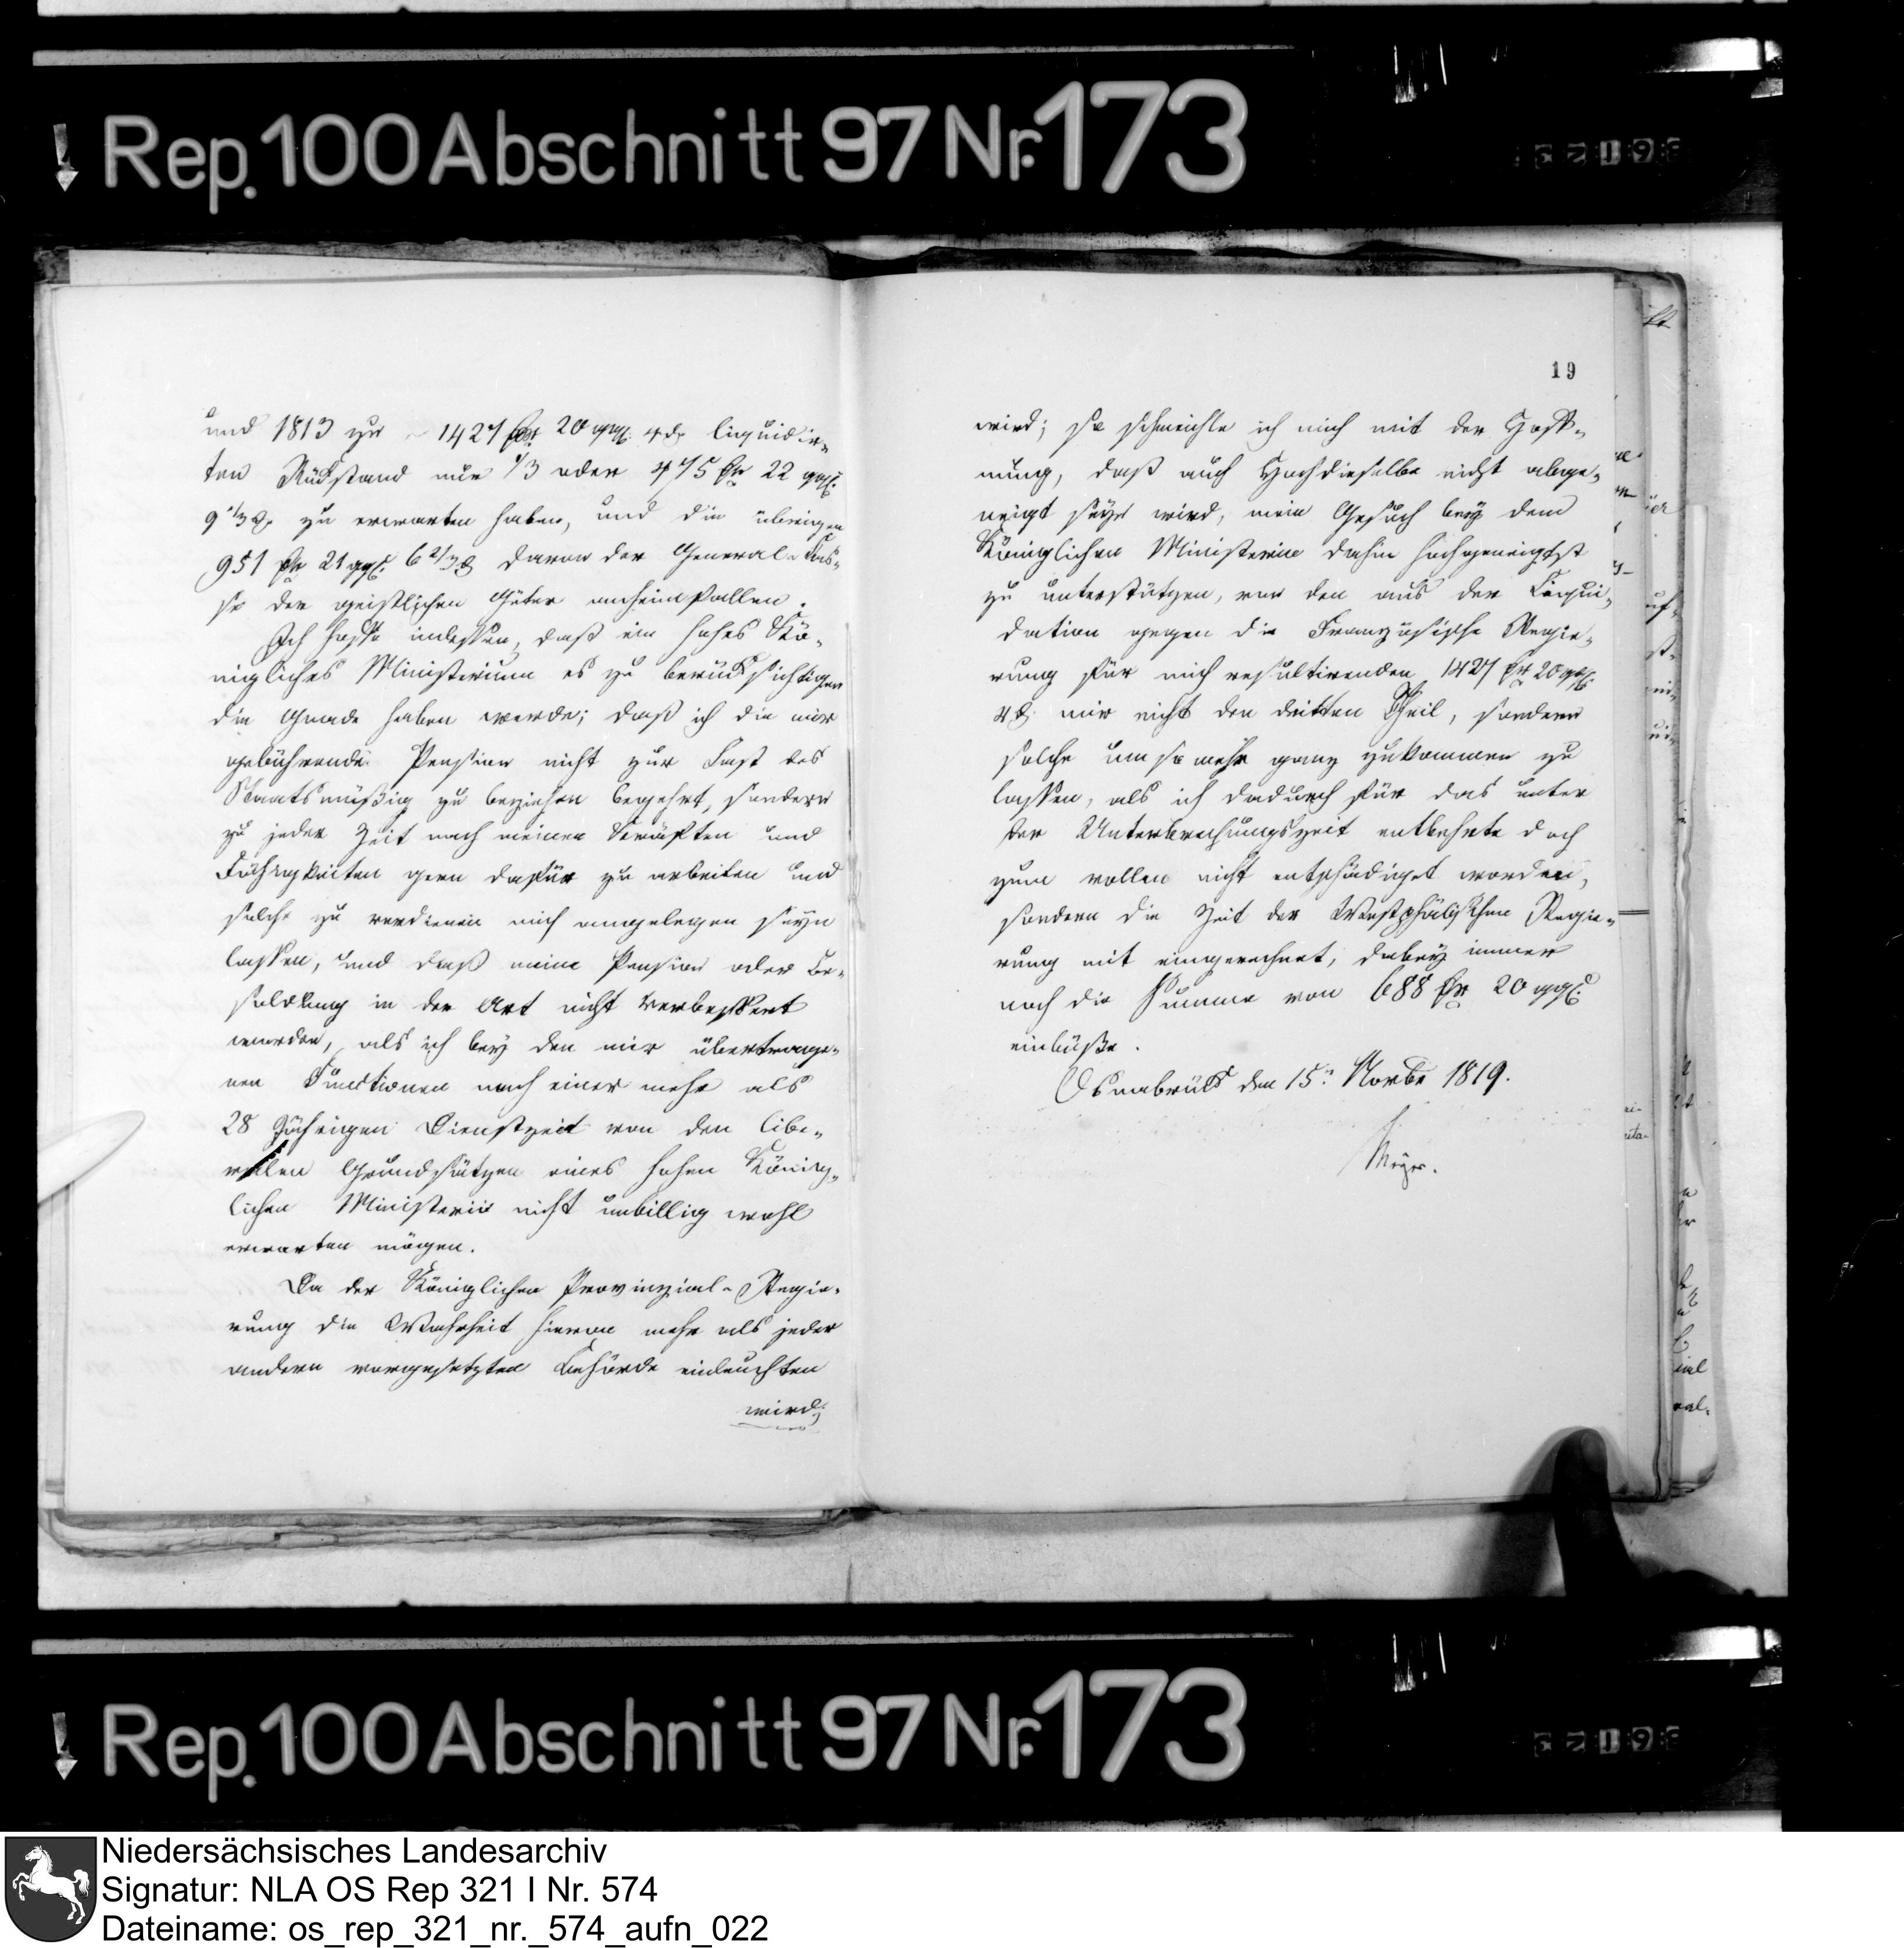 Rep. 100 Abschnitt 97 Nr. 173
und 1813 zu 1427 Rthr 20 ggl. 4 d. liquidir-
ten Rückstand nur 1/3 oder 475 Rthr 22 ggl.
9 1/3 d. zu erwarten haben, und die übrigen
951 Rthr 21 ggl. 6 2/3 d davon der General-Cas-
se der geistlichen Güter anheimfallen.
Ich hoffe indessen, daß ein hohes Kö-
nigliches Ministerium es zu berücksichtigen
die Gnade haben werde; daß ich die mir
gebührende Pension nicht zur Last des
Staats müßig zu beziehen begehrt, sondern
zu jeder Zeit nach meinen Kräften und
Fähigkeiten gern dafür zu arbeiten und
solche zu verdienen mich angelegen seyn
lassen, und daß meine Pension oder Be-
soldung in der Art nicht verbessert
worden, als ich bey den mir übertrage-
nen Functionen nach einer mehr als
28 Jährigen Dienstzeit von den libe-
ralen Grundsätzen eines hohen König-
lichen Ministerii nicht unbillig wohl
erwarten mögen.
Da der Königlichen Provinzial-Regie-
rung die Wahrheit hievon mehr als jeder
andern vorgesetzten Behörde einleuchten
wird;
19
wird; so schmeichle ich mich mit der Hoff-
nung, daß auch Hochdieselbe nicht abge-
neigt seyn wird, mein Gesuch bey dem
Königlichen Ministerio dahin hochgeneigtst
zu unterstützen, von den aus der Liqui-
dation gegen die Französische Regie-
rung für mich resultirenden 1427 Rthr 20 ggl.
4 d. mir nicht den dritten Theil, sondern
solche um so mehr ganz zukommen zu
lassen, als ich dadurch für das unter
der Unterbrechungszeit entbehrte doch
zum vollen nicht entschädiget worden,
sondern die Zeit der Westphälischen Regie-
rung mit eingerechnet, dabey immer
noch die Summe von 688 Rthr 20 ggl.
einbüße.
Osnabrück den 15n Novbr 1819.
Meyer.
Rep. 100 Abschnitt 97 Nr. 173
Niedersächsisches Landesarchiv
Signatur: NLA OS Rep 321 I Nr. 574
Dateiname: os_rep_321_nr._574_aufn_022